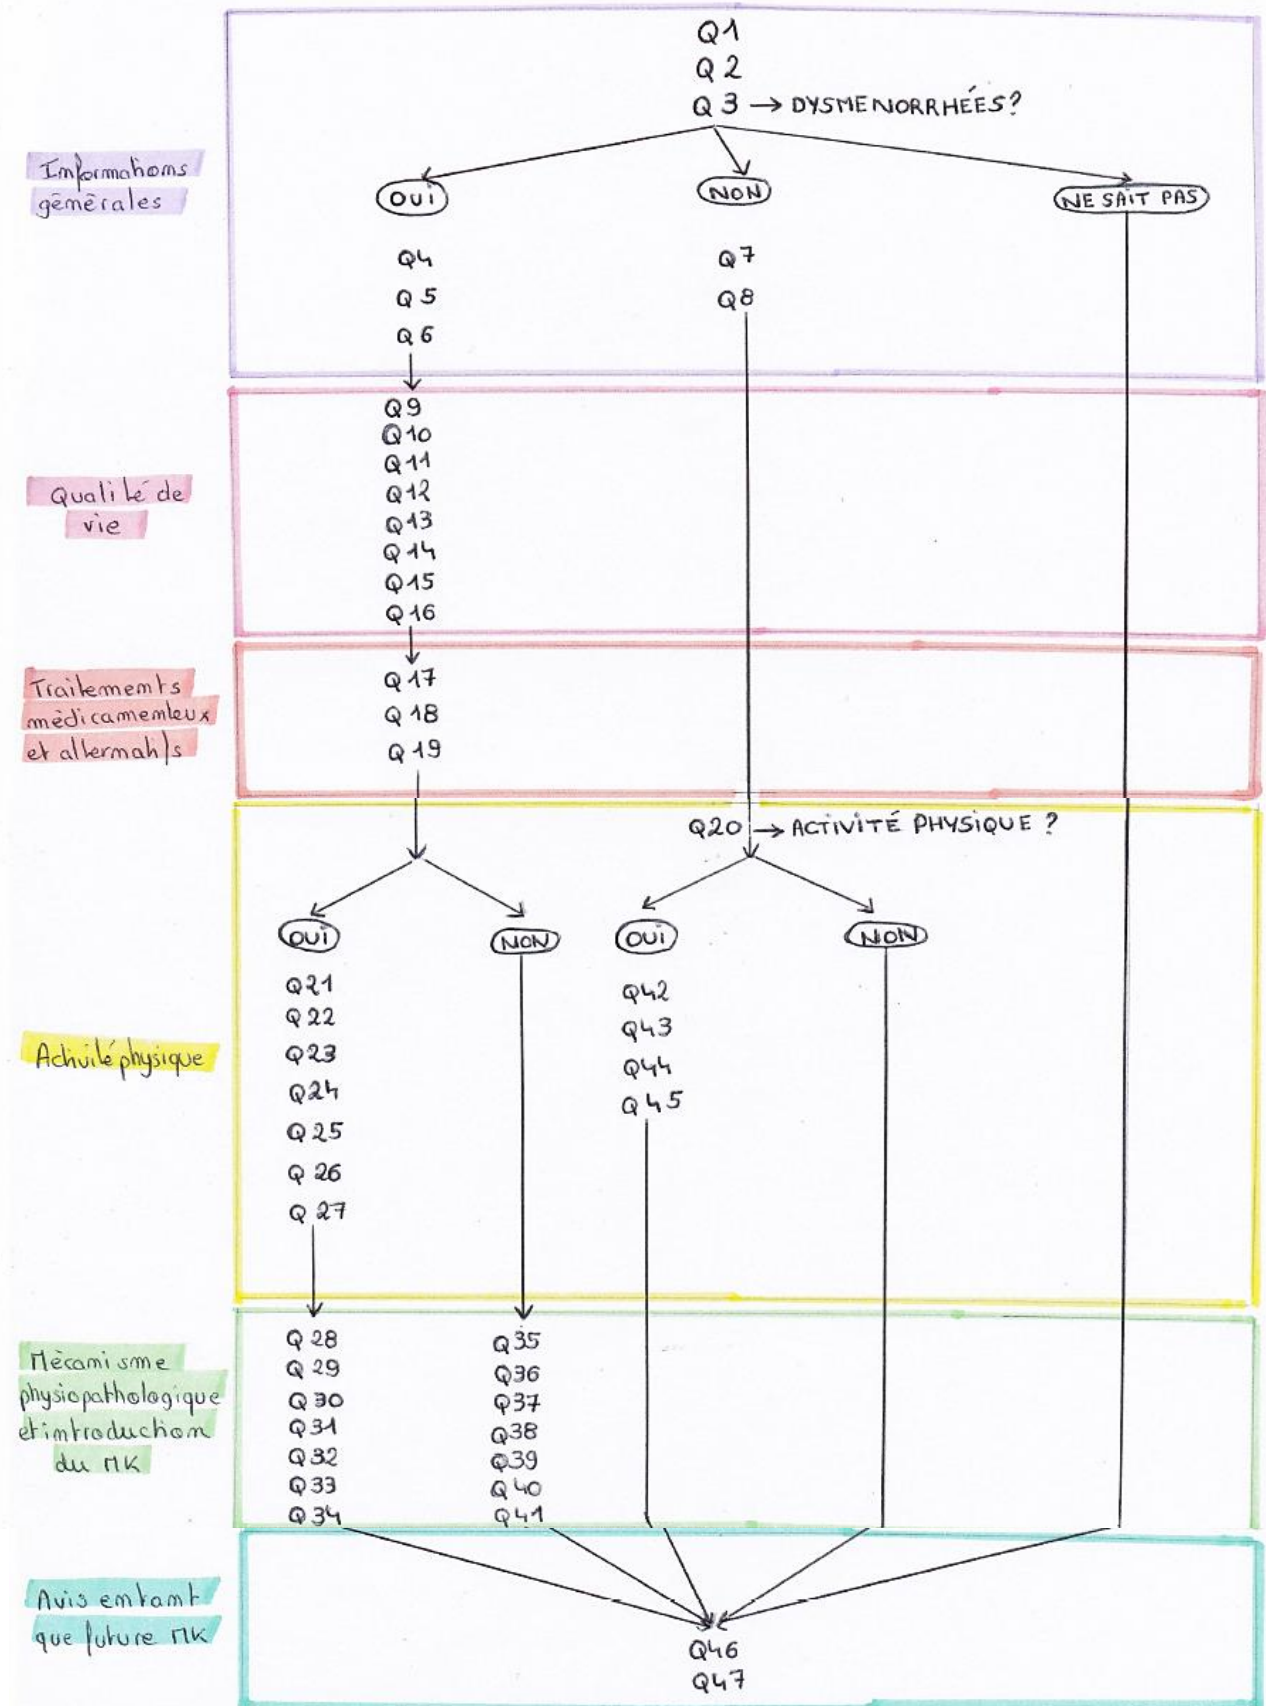 Q1
Q2
Q3 → DYSMENORRHÉES?
Informations
générales
OUI
NON
NE SAIT PAS
Q4
Q5
Q6
Q7
Q8
Qualité de
vie
Q9
Q10
Q11
Q12
Q13
Q14
Q15
Q16
Traitements
médicamenteux
et alternatifs
Q17
Q18
Q19
Activité physique
Q20 → ACTIVITÉ PHYSIQUE ?
OUI
NON
OUI
NON
Q21
Q22
Q23
Q24
Q25
Q26
Q27
Q42
Q43
Q44
Q45
Mécanisme
physiopathologique
et introduction
du MK
Q28
Q29
Q30
Q31
Q32
Q33
Q34
Q35
Q36
Q37
Q38
Q39
Q40
Q41
Avis entant
que future MK
Q46
Q47